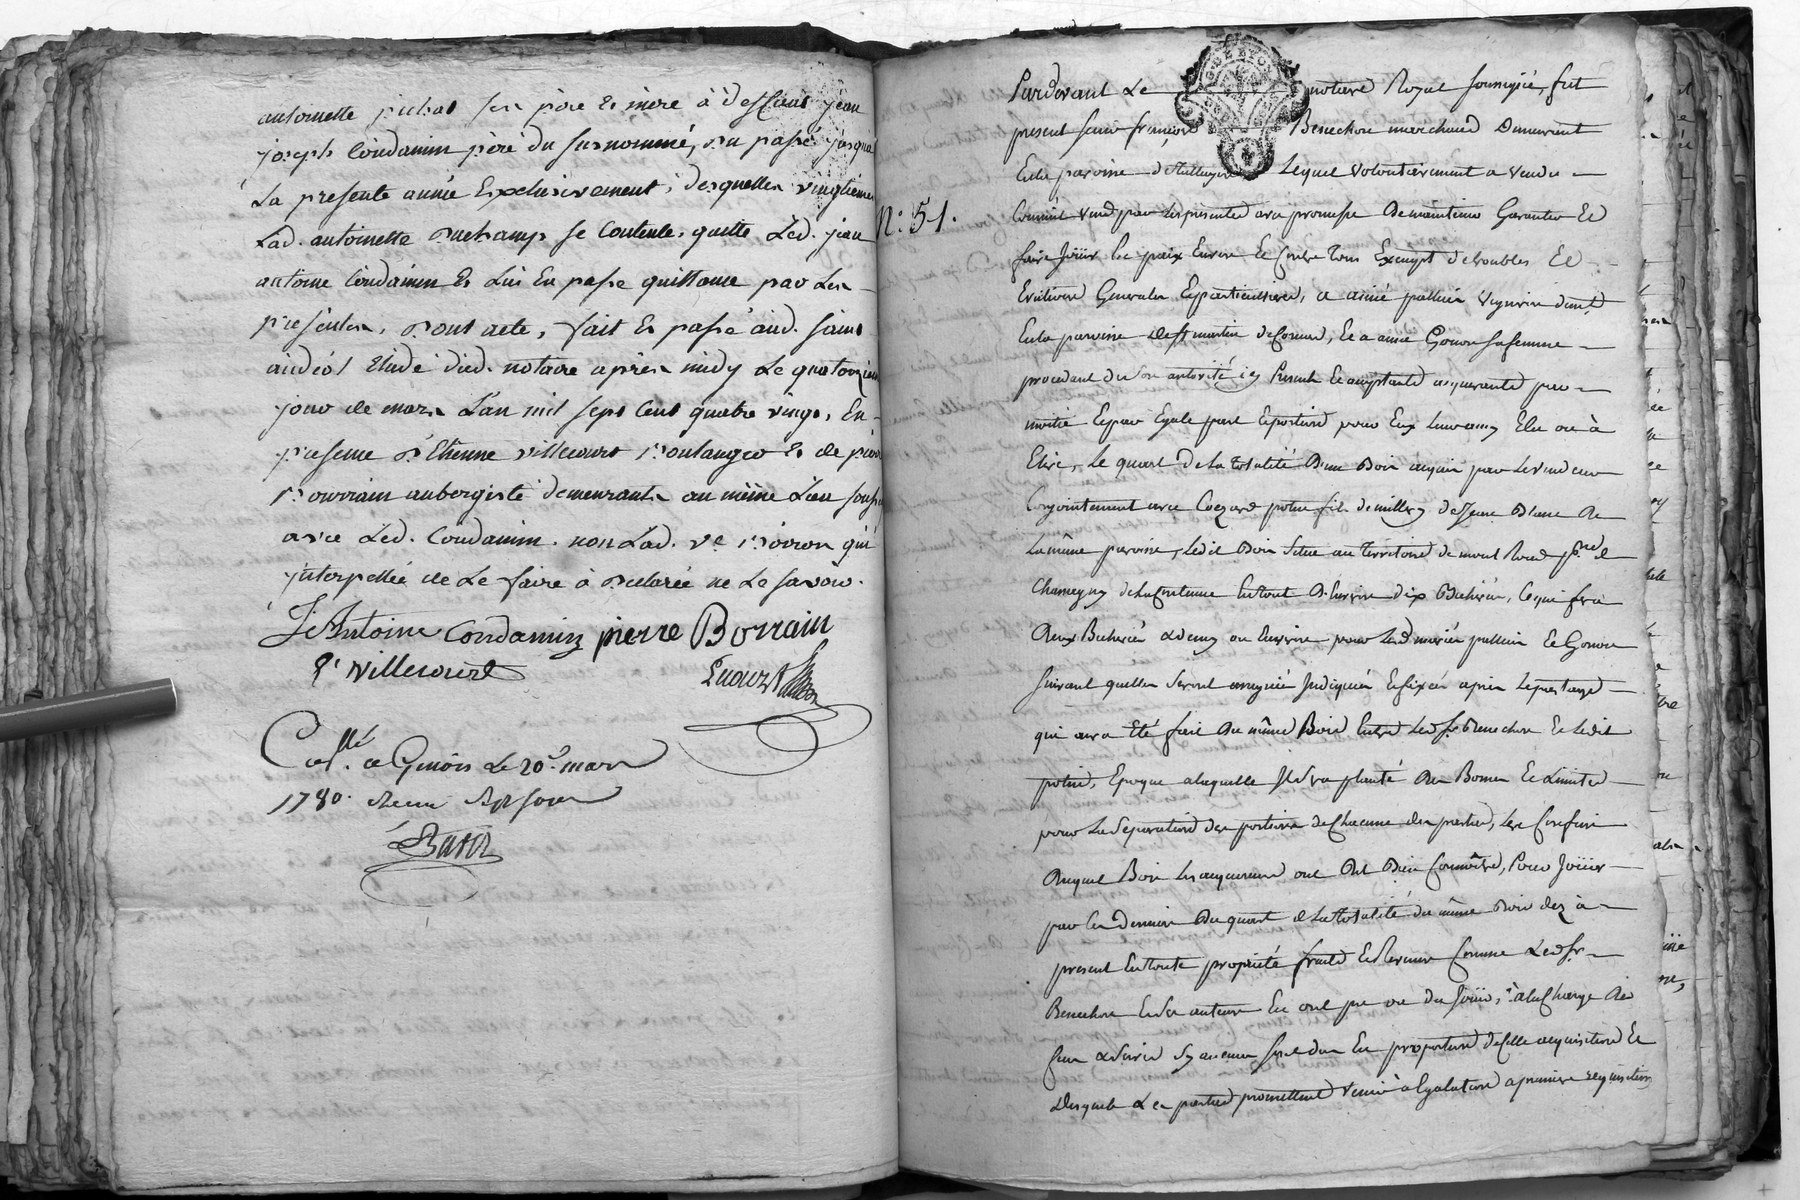 antoinette pichat ses père & mere à deffunt jean
joseph Condamin père du susnommé, du passé jusqua
La presente année Exclusivement, desquelles vingtieme
Lad. antoinette duchamp se Contente, quitte Led. jean
antoine Condamin & Lui En passe quittance par Les
presentes, Dont acte, fait & passé aud. saint
andéol Etude dud. notaire après midy Le quatorzieme
jour de mars L'an mil sept Cent quatre vingt, En
presence d'Etienne villecourt Boulanger & de pierre
Bourrain aubergiste demeurants au même Lieu
avec Led. Condamin. non Lad. ve. qui
interpellée de Le faire à Declarée ne Le savoir.
J. Antoine Condamin pierre Borrain
E. Villecourt
Collé. a Givors Le 20e. mars
1780. Recu sept sous
N.° 51.
Pardevant Le notaire Royal soussigné, fut
present sieur françois Benechon marchand Demeurant
En la paroisse Lequel volontairement a vendu
Comme vend par Les presentes avec promesse De maintenir Garantir Et
faire Jouir En paix Envers Et Contre tous Exempt de troubles Et
Evictions Generales Et particullieres, a aimé pallein vigneron demt.
En la paroisse de St martin de Cornas, Et a aimée Gonon sa femme
procedant de son autorité icy Presents Et acceptants acquereurs par
moitié Et par Egale part Et portion pour Eux Leurs amis Elus ou à
Elire, Le quart de La totalité D'un Bois acquis par Le vendeur
Conjointement avec potin fils de millery de Jean Blanc de
La même paroisse, Ledit Bois Situé au territoire de mont Rond
Chassagny de La Contenue En tout D'Environ dix Bicherées, Ce qui fera
Deux Bicherées & demy ou Environ pour Lesd mariés pallein Et Gonon
Suivant quelles seront assignées Indiquées Et fixées après Le partage
qui aura Eté fait du même Bois Entre Led. sr. Benechon Et Ledit
potin, Epoque a laquelle Il sera planté des Bornes Et Limites
pour La Separation des portions de Chacune des parties, Les Confins
Duquel Bois Les acquereurs ont dit Bien Connoitre, Pour Jouir
par Ces Derniers Du quart de La totalité du même Bois dez à
present En toute propriété fruits Et Revenus Comme Led. sr.
Benechon Et Ses auteurs En ont pu ou du Jouir, à La Charge de
sy aucuns sont dus En proportion de Cette acquisition Et
desquels Les parties promettent venir à Egalation a premiere requisition